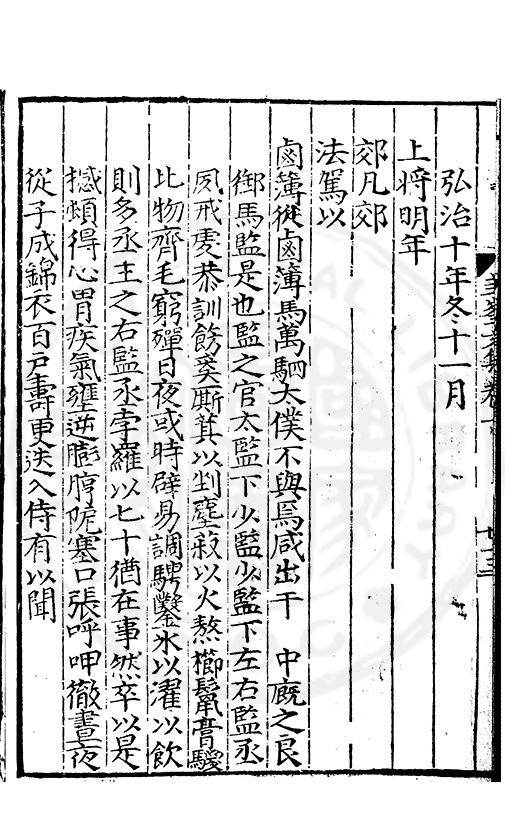 弘治十年冬十一月
上將明年
郊凡郊
法駕以
鹵簿從鹵簿馬萬駟太僕不與焉咸出于 中廐之良
御馬監是也監之官太監下少監少監下左右監丞
夙戒虔恭訓飭奚廝箕以剉塵殺以火熬櫛鬣膏騣
比物齊毛窮殫日夜或時辟易調騁鑿氷以濯以飲
則多丞主之右監丞李羅以七十猶在事然卒以是
撼頓得心胃疾氣壅逆膨脝阨塞口張呼呷徹晝夜
從子成錦衣百戶壽更迭入侍有以聞